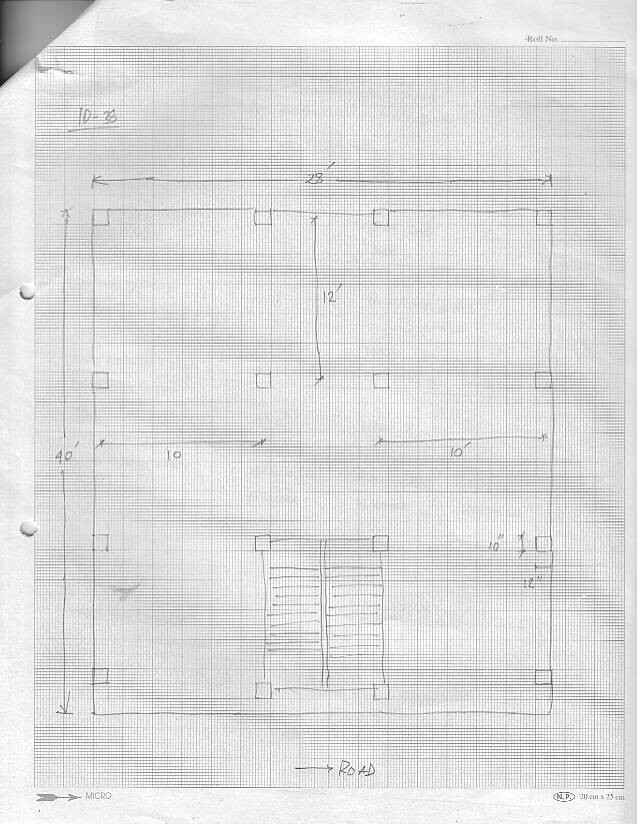 Roll No. ........................
ID-38
28'
12'
40'
10
10'
10"
12"
ROAD
MICRO
N.P. 20 cm x 25 cm